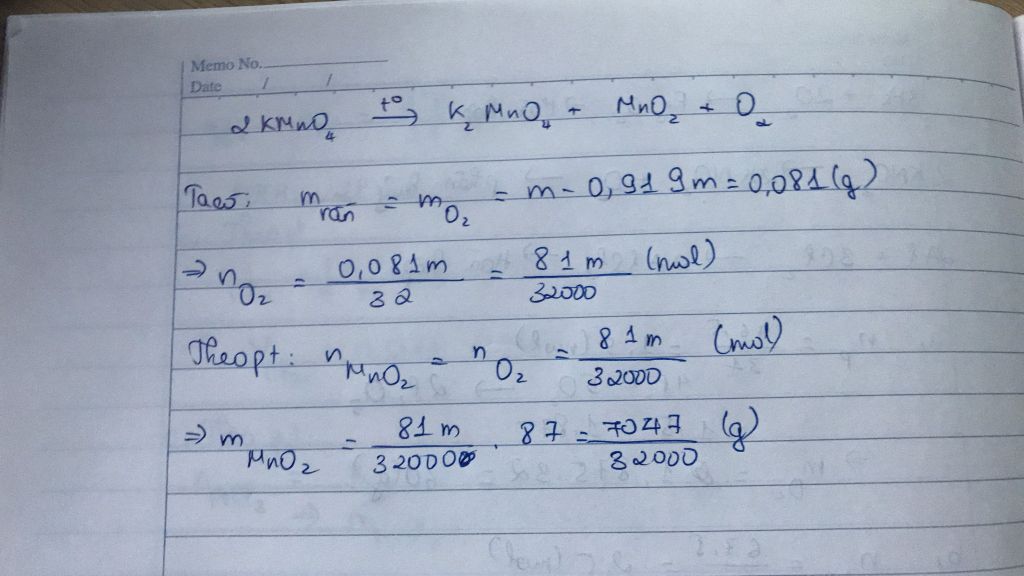 Memo No.
Date / /
2KMnO₄ t° → K₂MnO₄ + MnO₂ + O₂
m rắn = m O₂ = m - 0,919m = 0,081(g)
⇒ n O₂ = 0,081m / 32 = 81m / 32000 (mol)
Theo pt: n MnO₂ = n O₂ = 81m / 32000 (mol)
⇒ m MnO₂ = 81m / 32000 . 87 = 7047 / 32000 (g)